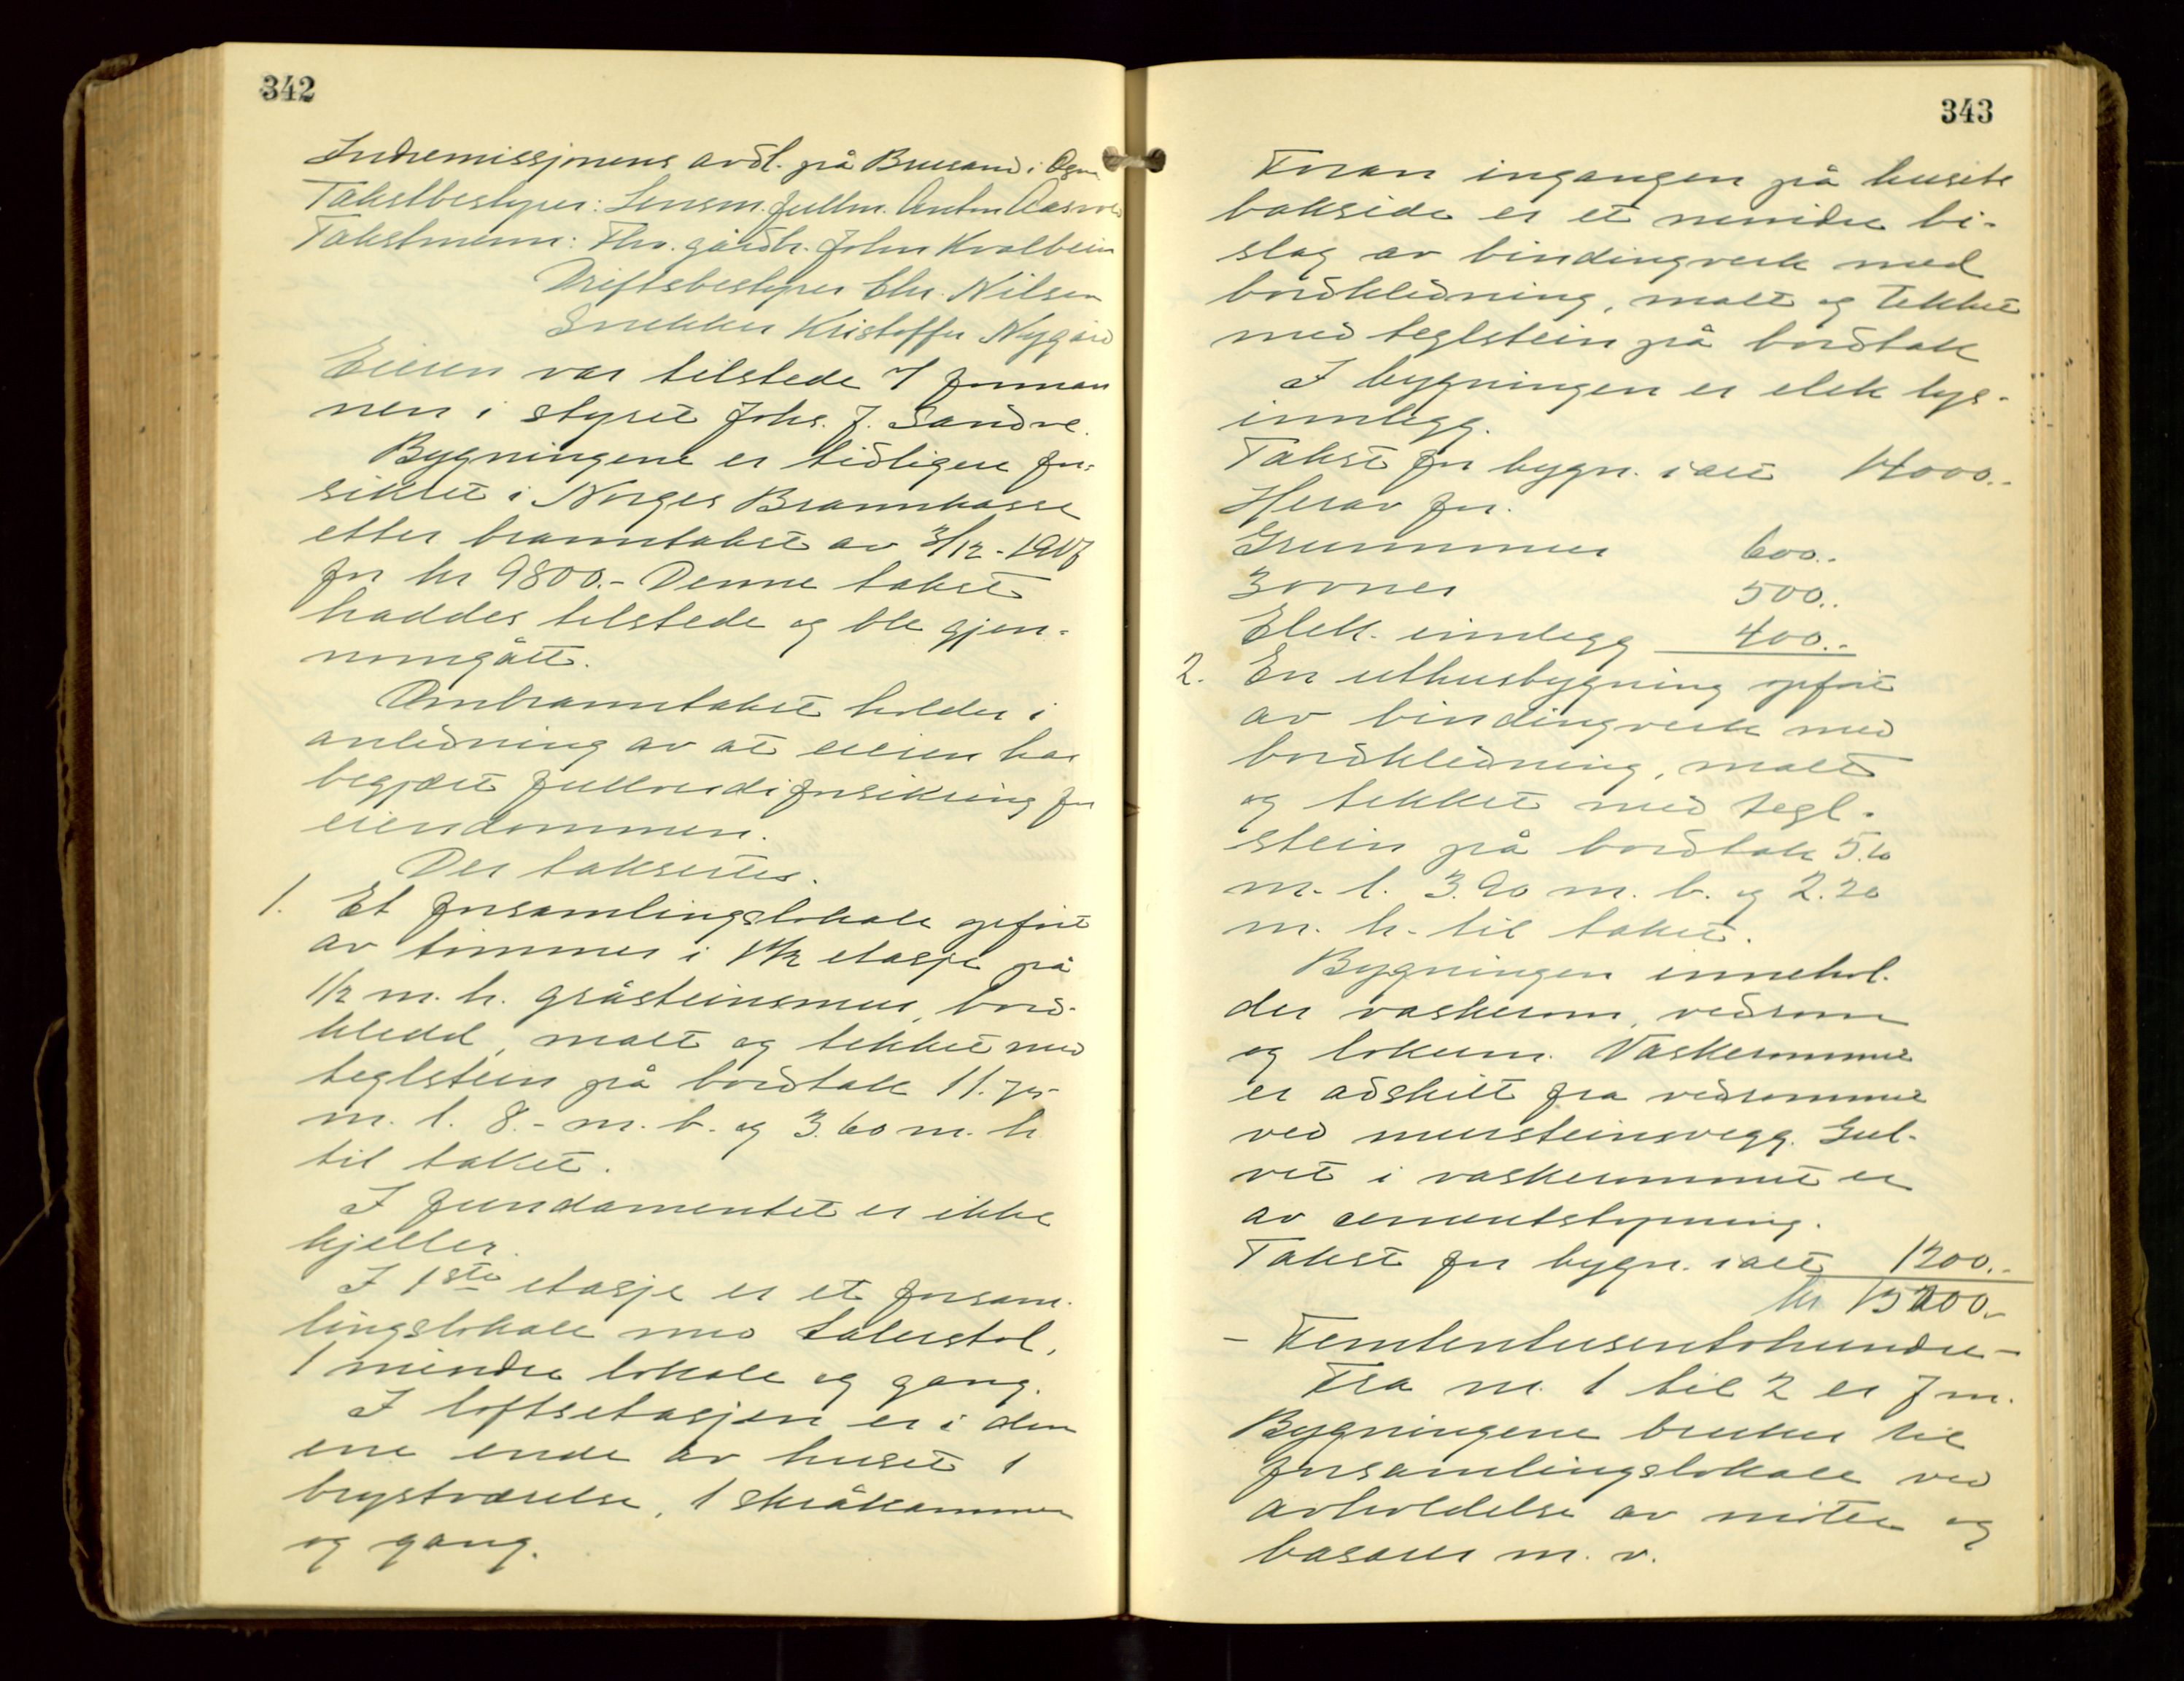 342
Indremissjonens avdl. på Brusand i Ogna
Takstbestyrer: Lensm. fullm. Anton Aasvold
Takstmenn: Fhv. gårdbr. John Kvalbein
Driftsbestyrer Chr. Nilsen
Snekker Kristoffer Nygård
Eieren var tilstede v/ forman
nen i styret Johs. J. Sandve.
Bygningene er tidligere for-
sikret i Norges Brannkasse
etter branntakst av 3/12-1917
for kr 9800.- Denne takst
haddes tilstede og ble gjen-
nomgått.
Ombranntakst holdes i
anledning av at eieren har
begjært fullverdiforsikring for
eiendommen.
Der taksertes.
1. Et forsamlingslokale opført
av tømmer i 1 1/2 etasje på
1/2 m. h. gråsteinsmur, bord-
kledd, malt og tekket med
teglstein på bordtak 11.75
m. l. 8.- m. b. og 3.60 m. h.
til taket.
I fundamentet er ikke
kjeller.
I 1ste etasje er et forsam-
lingslokale med talerstol,
1 mindre lokale og gang.
I loftsetasjen er i den
ene ende av huset 1
brystværelse, 1 skråkammer
og gang.
343
Foran ingangen på husets
bakside er et mindre bi-
slag av bindingverk med
bordkledning, malt og tekket
med teglstein på bordtak
I bygningen er elek lys-
innlegg.
Takst for bygn. ialt 14000.-
Herav for.
Grunnmur 600.-
3 ovner 500.-
Elek. innlegg 400.-
2. En uthusbygning opført
av bindingverk med
bordkledning, malt
og tekket med tegl-
stein på bordtak 5.60
m. l. 3.90 m. b. og 2.20
m. h. til taket.
Bygningen innehol-
der vaskerom, vedrom
og lokum. Vaskerommet
er adskilt fra vedrommet
ved mursteinsvegg. Gul-
vet i vaskerommet er
av cementstøpning.
Takst for bygn. ialt 1200.-
kr 15200.-
- Femtentusentohundre -
Fra nr. 1 til 2 er 7 m.
Bygningene brukes til
forsamlingslokale ved
avholdelse av møter og
basarer m. v.